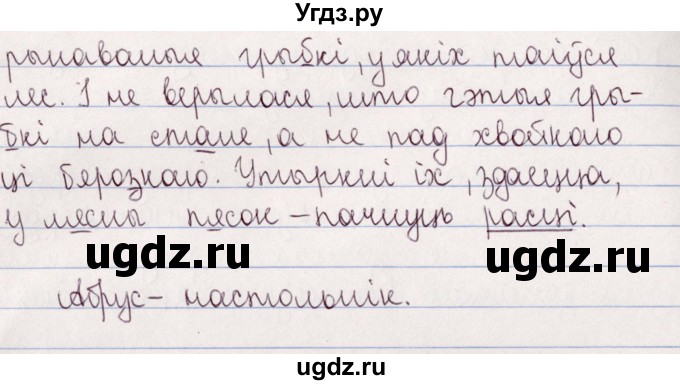 Угдз.ру
рыпаваныя грыбкі, у якіх таіўся
лес. І не верылася, што гэтыя гры-
бкі на стале, а не пад хвойкаю
ці бярозкаю. Утыркні іх, здаецца,
у лясны пясок – пачнуць расці.
ugdz.ru
ugdz.ru
Абрус – настольнік.
ugdz.ru